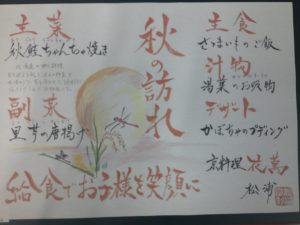 秋の訪れ
主食
さつまいものご飯
汁物
湯葉のお吸物
デザート
かぼちゃのプディング
主菜
秋鮭ちゃんちゃ焼き
副菜
里芋の唐揚げ
給食でお子様を笑顔に
京料理 花萬
松浦